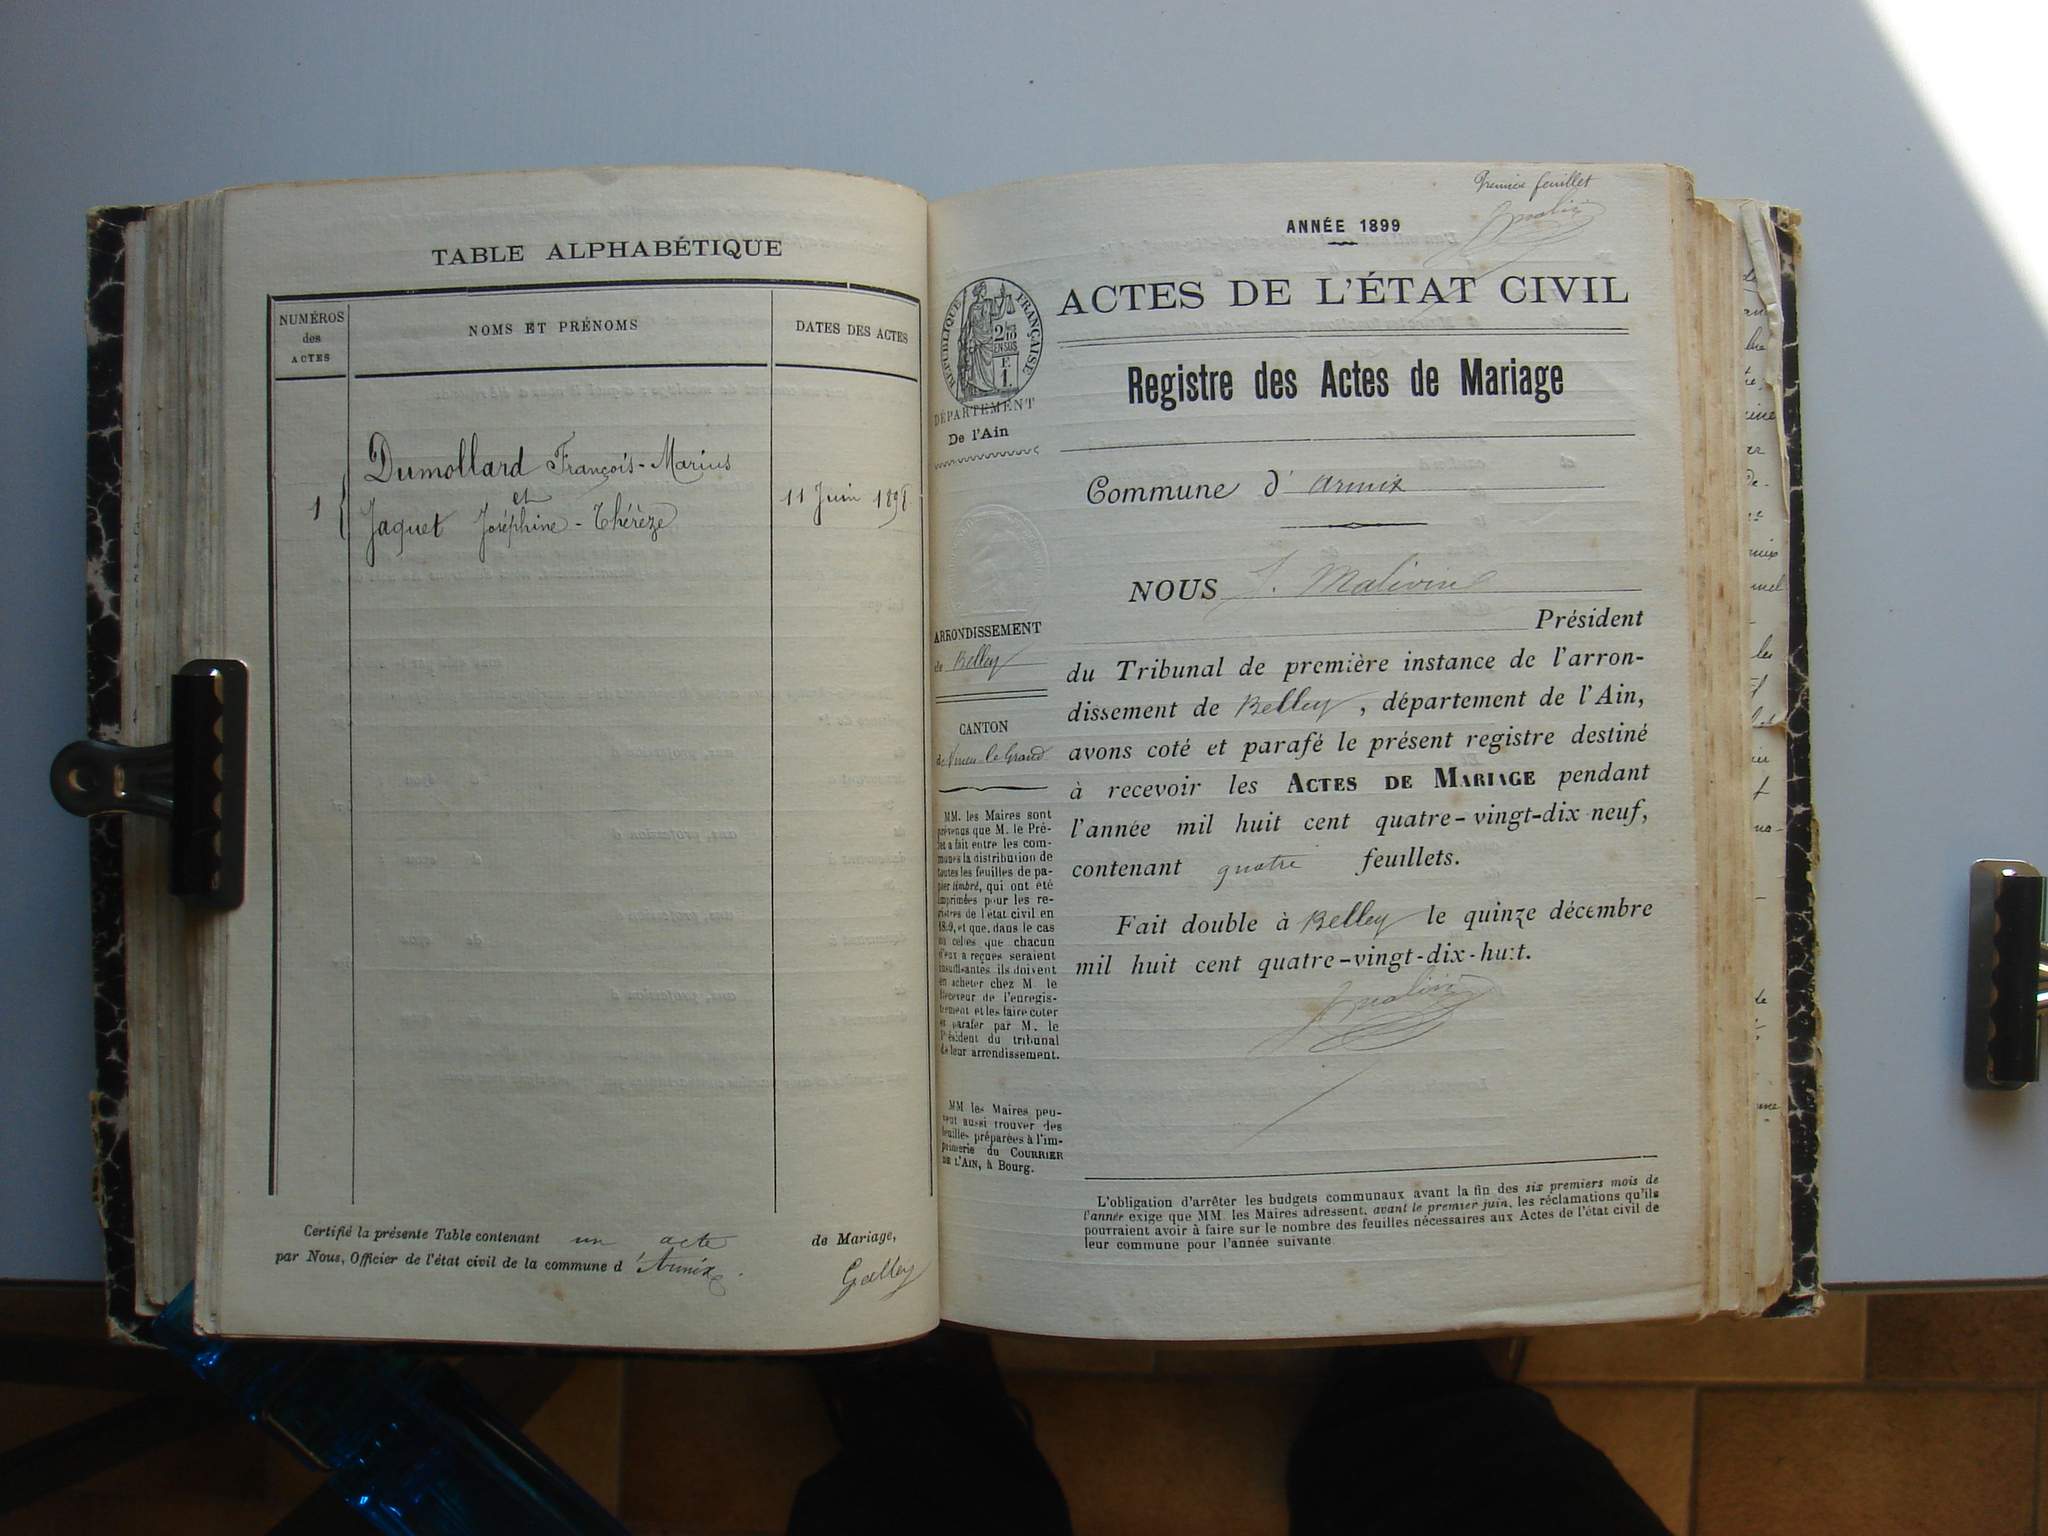 TABLE ALPHABÉTIQUE
NUMÉROS
des
ACTES
NOMS ET PRÉNOMS
DATES DES ACTES
Dumollard François-Marius
et
1
Jaquet Joséphine-Thérèze
11 Juin 1898
Certifié la présente Table contenant un acte de Mariage,
par Nous, Officier de l'état civil de la commune d'Armix.
Premier feuillet
ANNÉE 1899
ACTES DE L'ÉTAT CIVIL
Registre des Actes de Mariage
RÉPUBLIQUE FRANÇAISE
2/10
EN SUS
DÉPARTEMENT
De l'Ain
Commune d'Armix
NOUS
Président
du Tribunal de première instance de l'arron-
dissement de Belley, département de l'Ain,
avons coté et parafé le présent registre destiné
à recevoir les ACTES DE MARIAGE pendant
l'année mil huit cent quatre-vingt-dix neuf,
contenant quatre feuillets.
Fait double à Belley le quinze décembre
mil huit cent quatre-vingt-dix-huit.
ARRONDISSEMENT
de Belley
CANTON
de Virieu le Grand
MM. les Maires sont
prévenus que M. le Pré-
fet a fait entre les com-
munes la distribution de
toutes les feuilles de pa-
pier timbré, qui ont été
imprimées pour les re-
gistres de l'état civil en
1899, et que, dans le cas
où celles que chacun
d'eux a reçues seraient
insuffisantes ils doivent
en acheter chez M. le
Receveur de l'enregis-
trement et les faire coter
et parafer par M. le
Président du tribunal
de leur arrondissement.
MM les Maires peu-
vent aussi trouver des
feuilles préparées à l'im-
primerie du COURRIER
DE L'AIN, à Bourg.
L'obligation d'arrêter les budgets communaux avant la fin des six premiers mois de
l'année exige que MM. les Maires adressent, avant le premier juin, les réclamations qu'ils
pourraient avoir à faire sur le nombre des feuilles nécessaires aux Actes de l'état civil de
leur commune pour l'année suivante